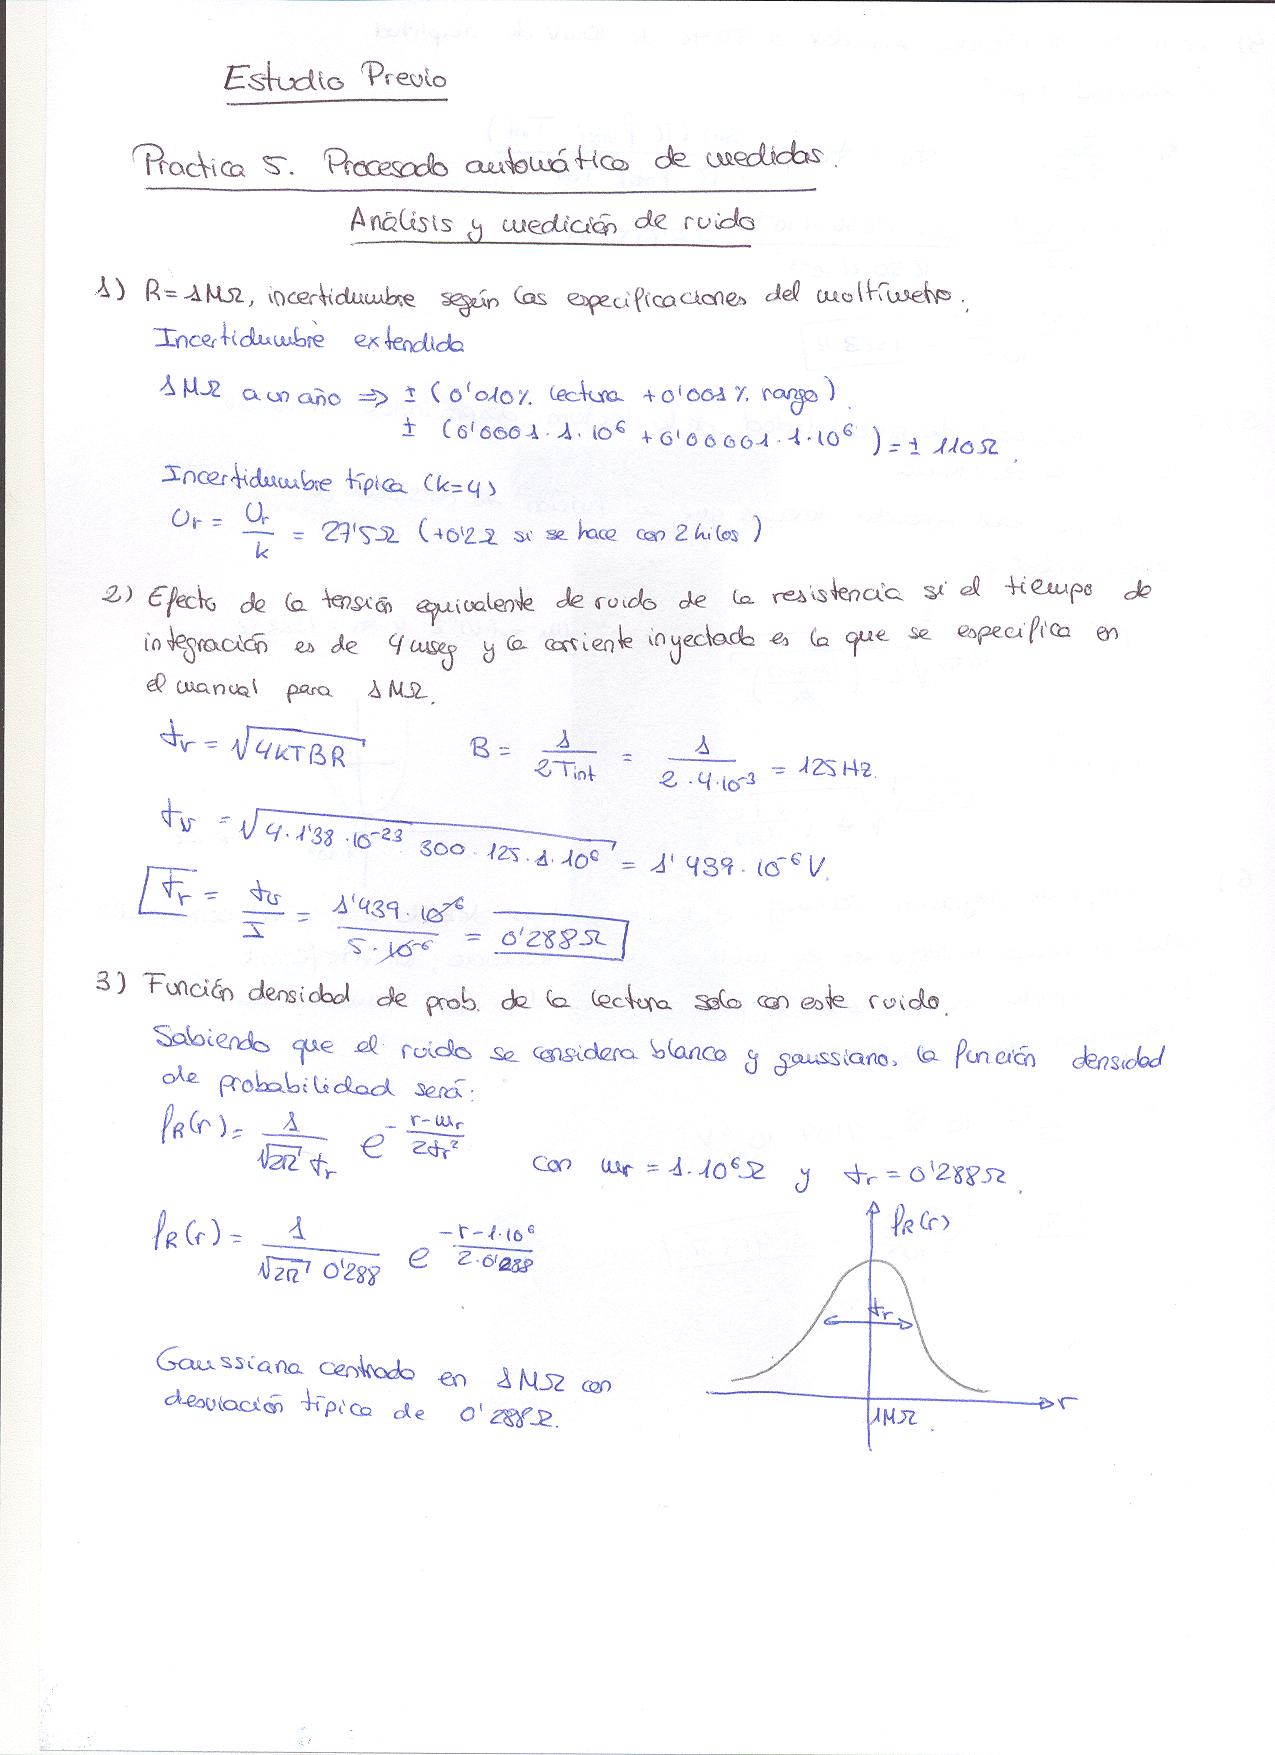 Estudio Previo
Practica 5. Procesado automático de medidas.
Análisis y medición de ruido
1) R = 1MΩ, incertidumbre según las especificaciones del moltímetro.
Incertidumbre extendida
1MΩ a un año => ± (0'010% lectura + 0'001% rango)
± (0'0001·1·10⁶ + 0'00001·1·10⁶) = ± 110Ω.
Incertidumbre típica (k=4)
Ur = Ur/k = 27'5Ω (+0'2Ω si se hace con 2 hilos)
2) Efecto de la tensión equivalente de ruido de la resistencia si el tiempo de
integración es de 4mseg y la corriente inyectada es la que se especifica en
el manual para 1MΩ.
σr = √4KTBR B = 1/2Tint = 1/2·4·10⁻³ = 125Hz.
σv = √4·1'38·10⁻²³ 300·125·1·10⁶ = 1'439·10⁻⁶V.
σr = σv/I = 1'439·10⁻⁶/5·10⁻⁶ = 0'288Ω
3) Función densidad de prob. de la lectura solo con este ruido.
Sabiendo que el ruido se considera blanco y gaussiano, la función densidad
de probabilidad será:
fR(r) = 1/√2π σr e^-(r-mr/2σr²) con mr = 1·10⁶Ω y σr = 0'288Ω.
fR(r) = 1/√2π 0'288 e^(-r-1·10⁶/2·0'288)
fR(r)
σr
r
1MΩ.
Gaussiana centrada en 1MΩ con
desviación típica de 0'288Ω.